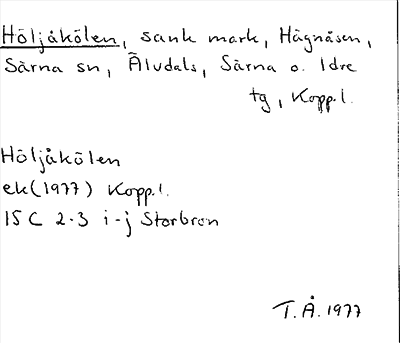 Höljåkölen, sank mark, Hågnåsen,
Särna sn, Älvdals, Särna o. Idre
tg, Kopp.l.
Höljåkölen
ek(1977) Kopp.l.
15 C 2-3 i-j Storbron
T.Å. 1977